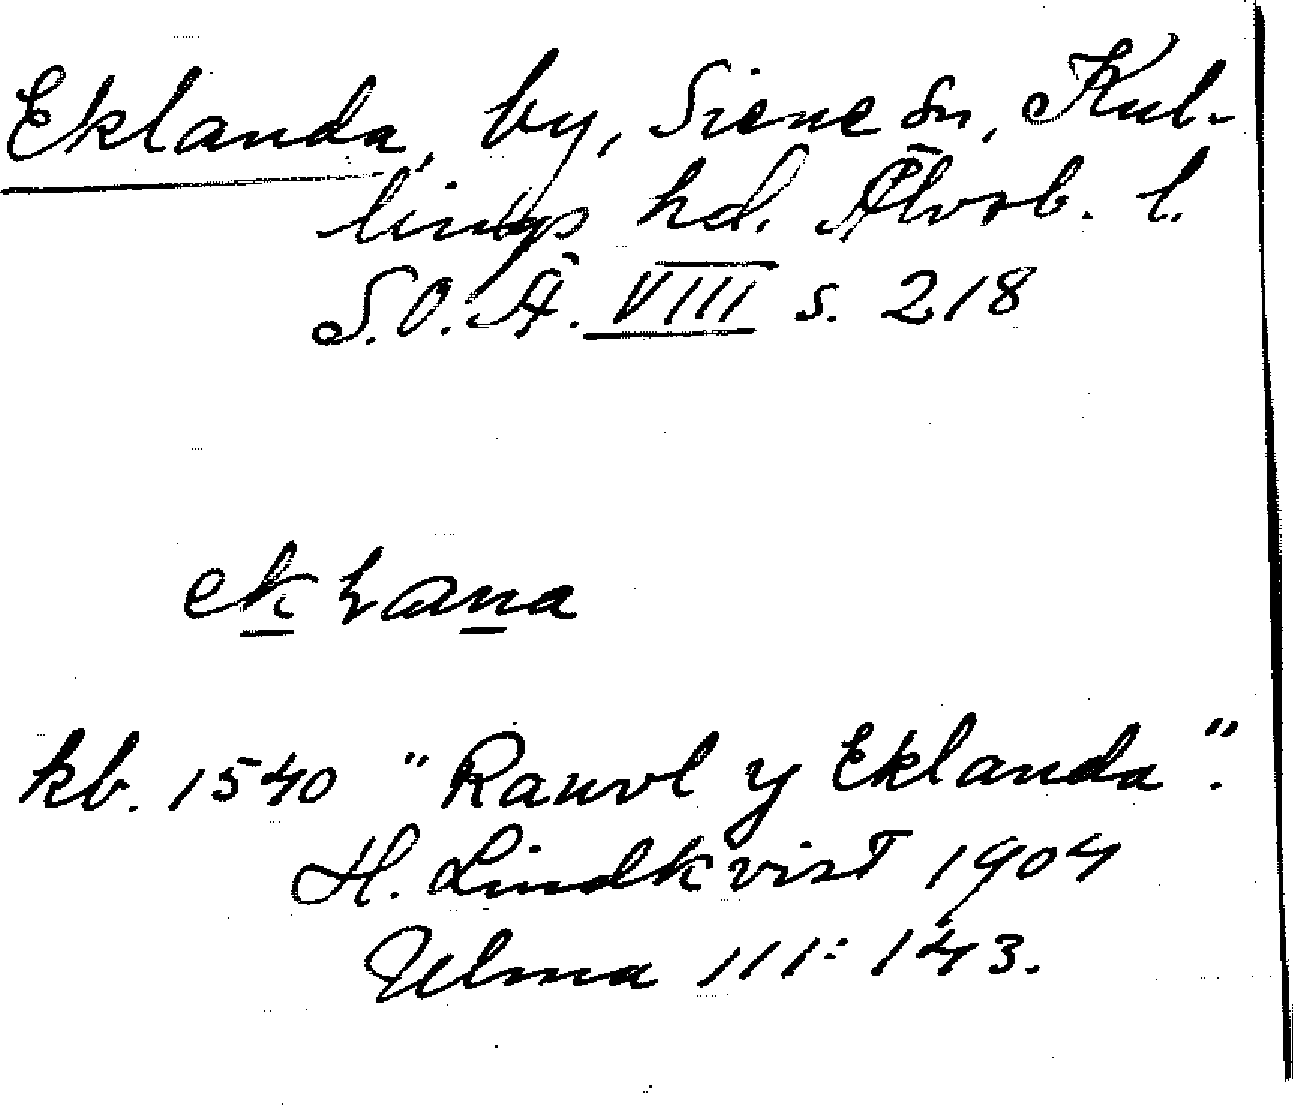 Eklanda, by, Siene sn, Kul-
lings hd. Älvsb. l.
S.O.Ä. VIII s. 218
kb. 1540 "Rawol y Eklanda".
H. Lindkvist 1904
Ulma 111:143.